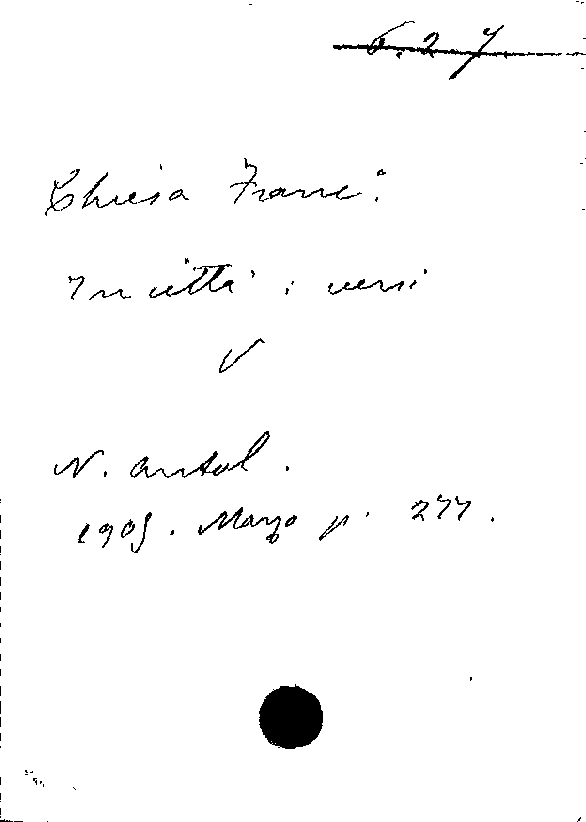 6.2.7.
Chiesa Franc.º
In città : versi
V
N. Antol.
1905. Marzo p. 277.